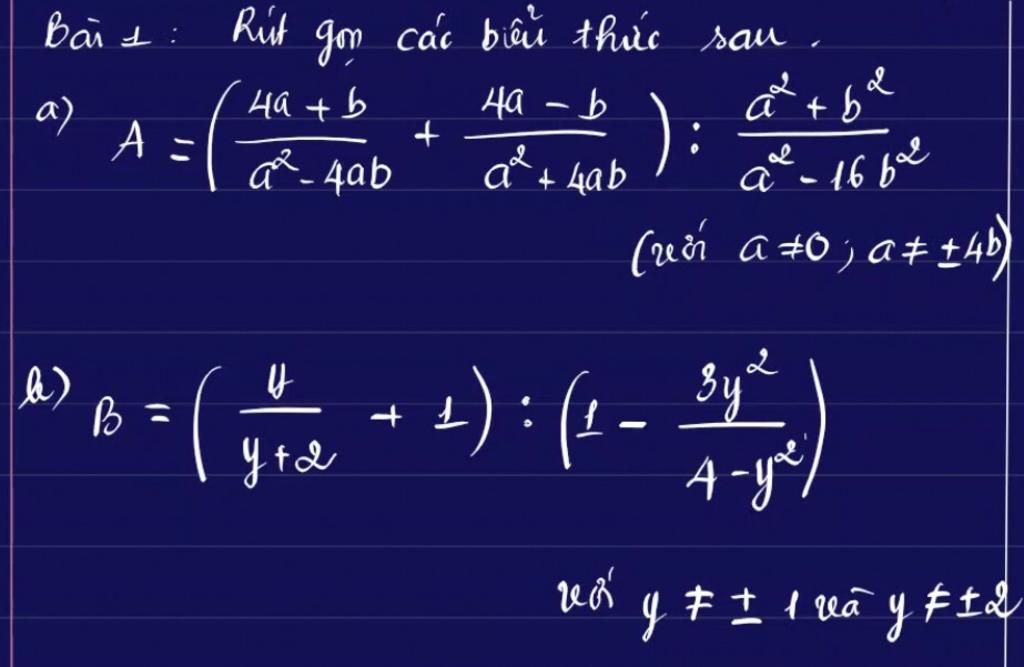 Bài 1 : Rút gọn các biểu thức sau .
a) A = ( (4a + b)/(a² - 4ab) + (4a - b)/(a² + 4ab) ) : (a² + b²)/(a² - 16b²)
(với a ≠ 0 ; a ≠ ±4b)
b) B = ( y/(y+2) + 1 ) : ( 1 - 3y²/(4 - y²) )
với y ≠ ± 1 và y ≠ ±2